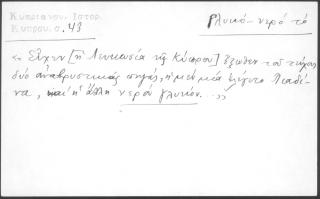 Κυπριανου, Ιστορ.
Κυπρου. σ. 43
Γλυκό-νερό το
«Εἶχεν [ἡ Λευκωσία τῆς Κύπρου] ἔξωθεν τοῦ τείχους
δύο ἀναβρυστικάς πηγάς, ἡ μέν μία ἐλέγετο Πιαδί-
να, καί ἡ ἄλλη νερόν γλυκύν...»